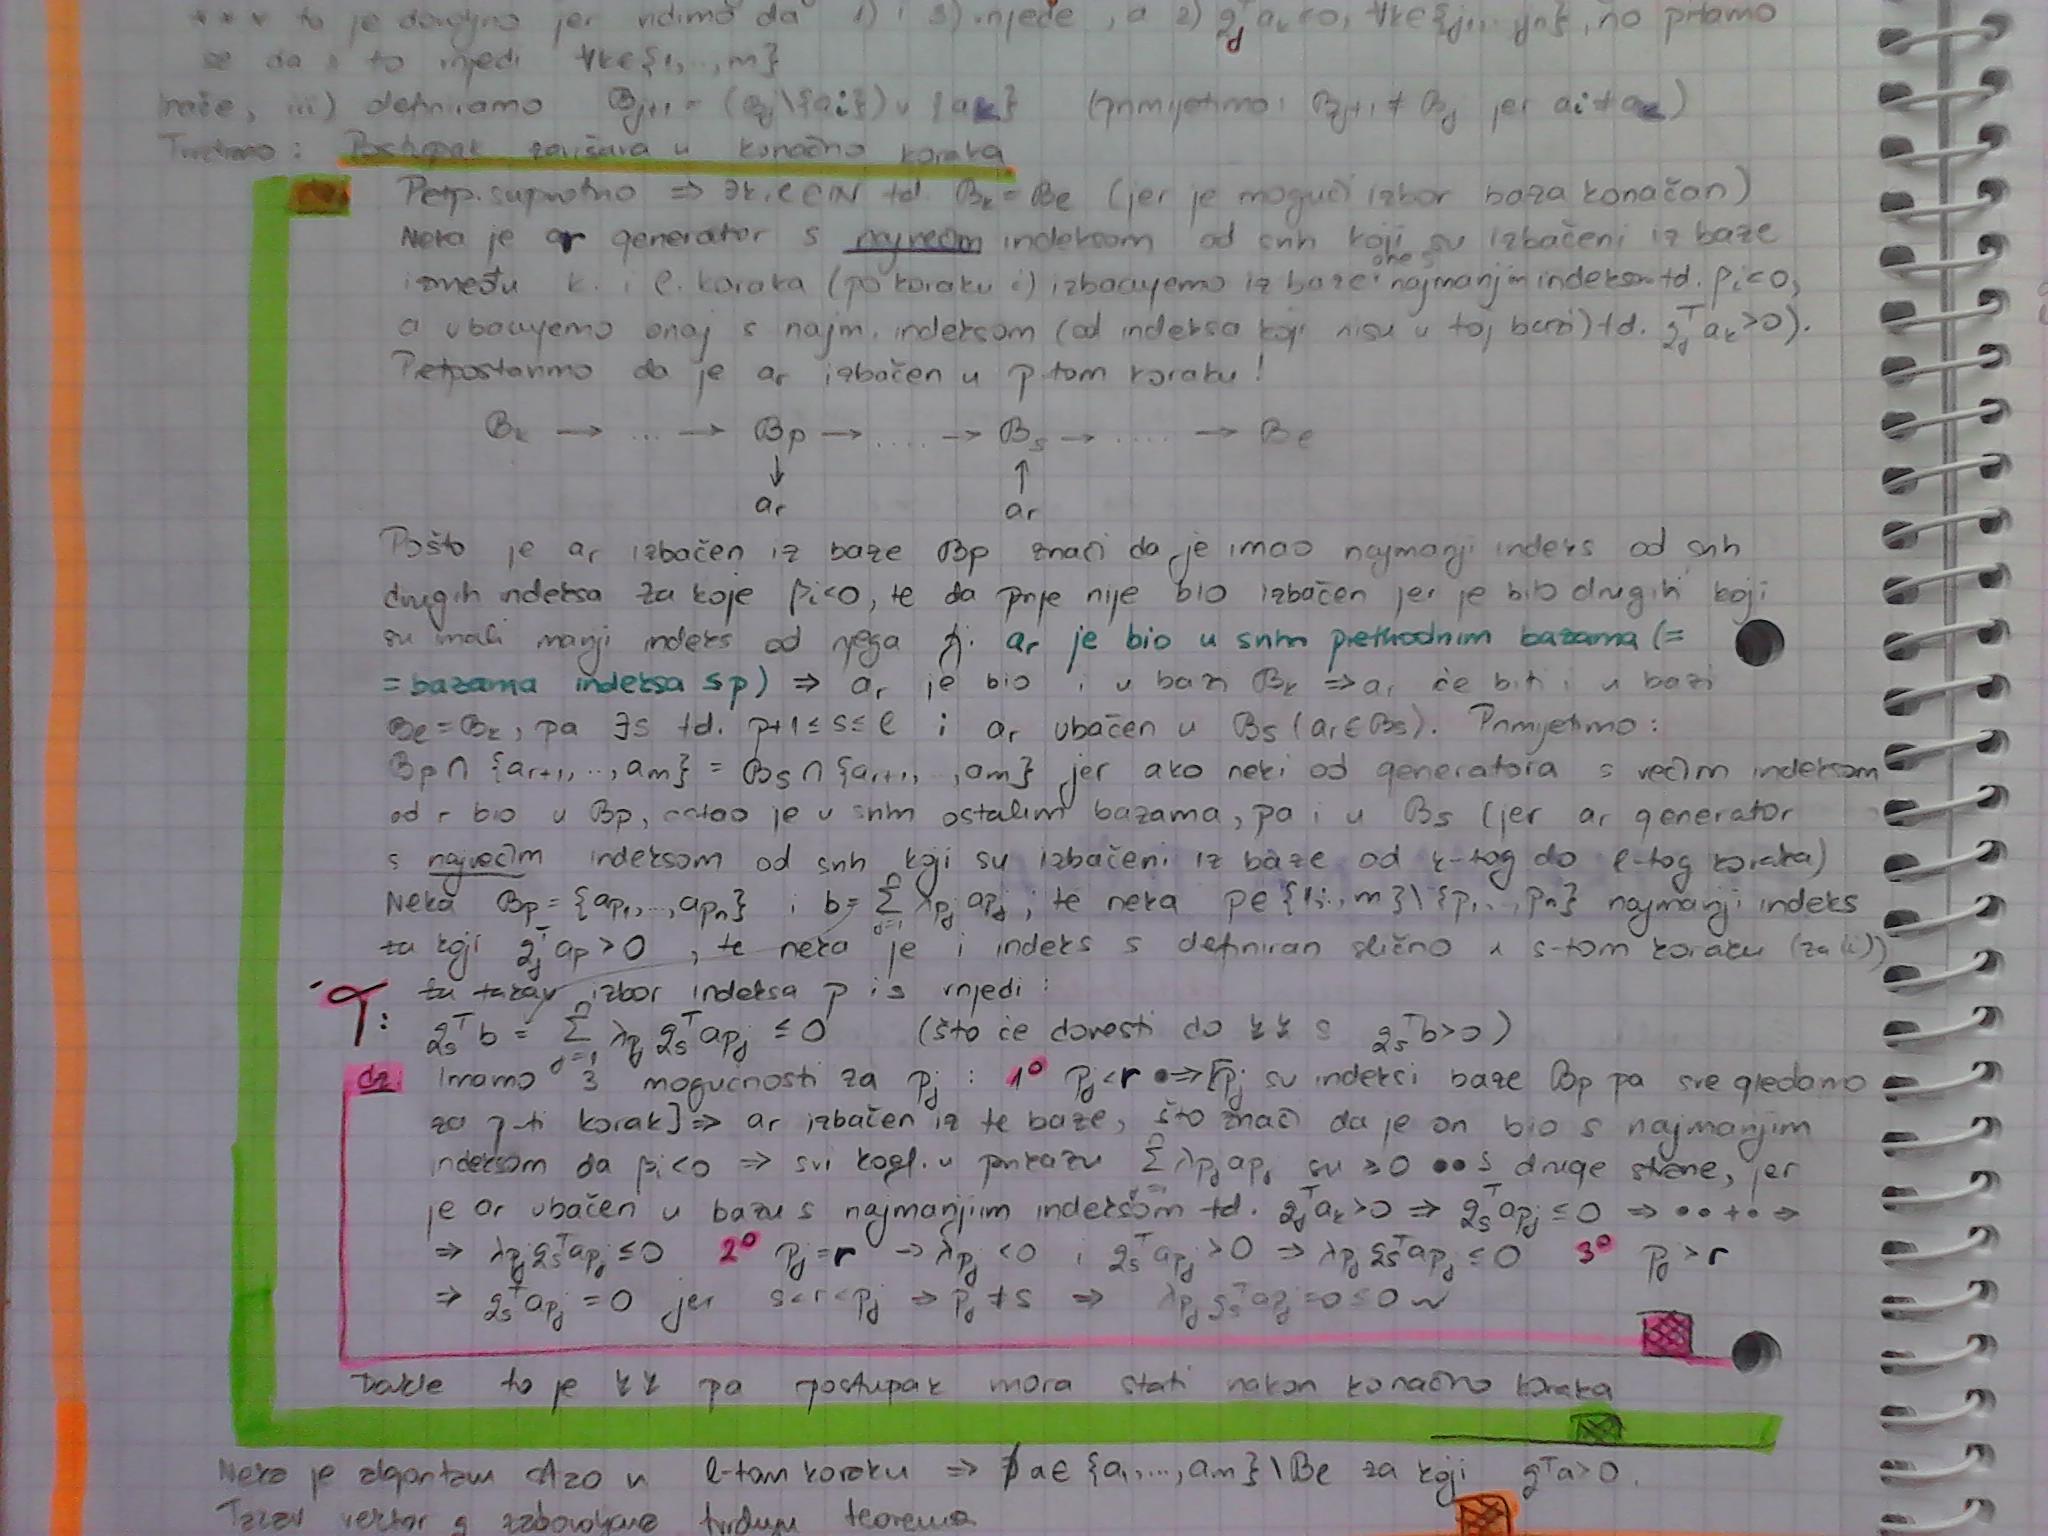 *** to je dovoljno jer vidimo da 1) i 3) vrijede, a 2) g_j^T a_k ≤ 0, ∀k∈{j_1,.., j_n}, no pitamo
se da i to vrijedi ∀k∈{1,..,m}
inače, iii) definiramo B_{j+1} = (B_j \ {a_i}) ∪ {a_k} (primijetimo: B_{j+1} ≠ B_j jer a_i ≠ a_k)
Tvrdimo: Postupak završava u konačno koraka
dz. Petp. suprotno ⇒ ∃k, l ∈ ℕ td. B_k = B_l (jer je mogući izbor baza konačan)
Neka je a_r generator s najvećim indeksom od svih koji su izbačeni iz baze
između k. i l. koraka (po koraku i) izbacujemo iz baze one s najmanjim indeksom td. β_i < 0,
a ubacujemo onaj s najm. indeksom (od indeksa koji nisu u toj bazi) td. g_j^T a_k > 0).
Petpostavimo da je a_r izbačen u p-tom koraku!
B_k → ... → B_p → .... → B_s → .... → B_l
↓ ↑
a_r a_r
Pošto je a_r izbačen iz baze B_p znači da je imao najmanji indeks od svih
drugih indeksa za koje β_i < 0, te da prije nije bio izbačen jer je bilo drugih koji
su imali manji indeks od njega tj. a_r je bio u svim prethodnim bazama (=
= bazama indeksa ≤ p) ⇒ a_r je bio i u bazi B_k ⇒ a_r će biti i u bazi
B_l = B_k, pa ∃s td. p+1 ≤ s ≤ l i a_r ubačen u B_s (a_r ∈ B_s). Primijetimo:
B_p ∩ {a_{r+1},..,a_m} = B_s ∩ {a_{r+1},..,a_m} jer ako neki od generatora s većim indeksom
od r bio u B_p, ostao je u svim ostalim bazama, pa i u B_s (jer a_r generator
s najvećim indeksom od svih koji su izbačeni iz baze od k-tog do l-tog koraka)
Neka B_p = {a_{p_1},..,a_{p_n}} i b = Σ_{j=1}^n λ_{p_j} a_{p_j}, te neka p∈{1,..,m}\{p_1,..,p_n} najmanji indeks
za koji g_j^T a_p > 0, te neka je i indeks s definiran slično u s-tom koraku (za ii)
T: za takav izbor indeksa p i s vrijedi:
g_s^T b = Σ_{j=1}^n λ_{p_j} g_s^T a_{p_j} ≤ 0 (što će dovesti do ↯↯ s g_s^T b > 0)
dz. Imamo 3 mogućnosti za p_j: 1° p_j < r • ⇒ [p_j su indeksi baze B_p pa sve gledamo
za p-ti korak] ⇒ a_r izbačen iz te baze, što znači da je on bio s najmanjim
indeksom da β_i < 0 ⇒ svi koef. u prikazu Σ λ_{p_j} a_{p_j} su ≥ 0 •• S druge strane, jer
je a_r ubačen u bazu s najmanjim indeksom td. g_j^T a_k > 0 ⇒ g_s^T a_{p_j} ≤ 0 ⇒ •• + • ⇒
⇒ λ_{p_j} g_s^T a_{p_j} ≤ 0 2° p_j = r → λ_{p_j} < 0 i g_s^T a_{p_j} > 0 ⇒ λ_{p_j} g_s^T a_{p_j} ≤ 0 3° p_j > r
⇒ g_s^T a_{p_j} = 0 jer s < r < p_j ⇒ p_j ≠ s ⇒ λ_{p_j} g_s^T a_{p_j} = 0 ≤ 0
Dakle to je ↯↯ pa postupak mora stati nakon konačno koraka
Neka je algoritam stao u l-tom koraku ⇒ ∄ a∈{a_1,..,a_m}\B_l za koji g^T a > 0.
Takav vektor g zadovoljava tvrdnju teorema